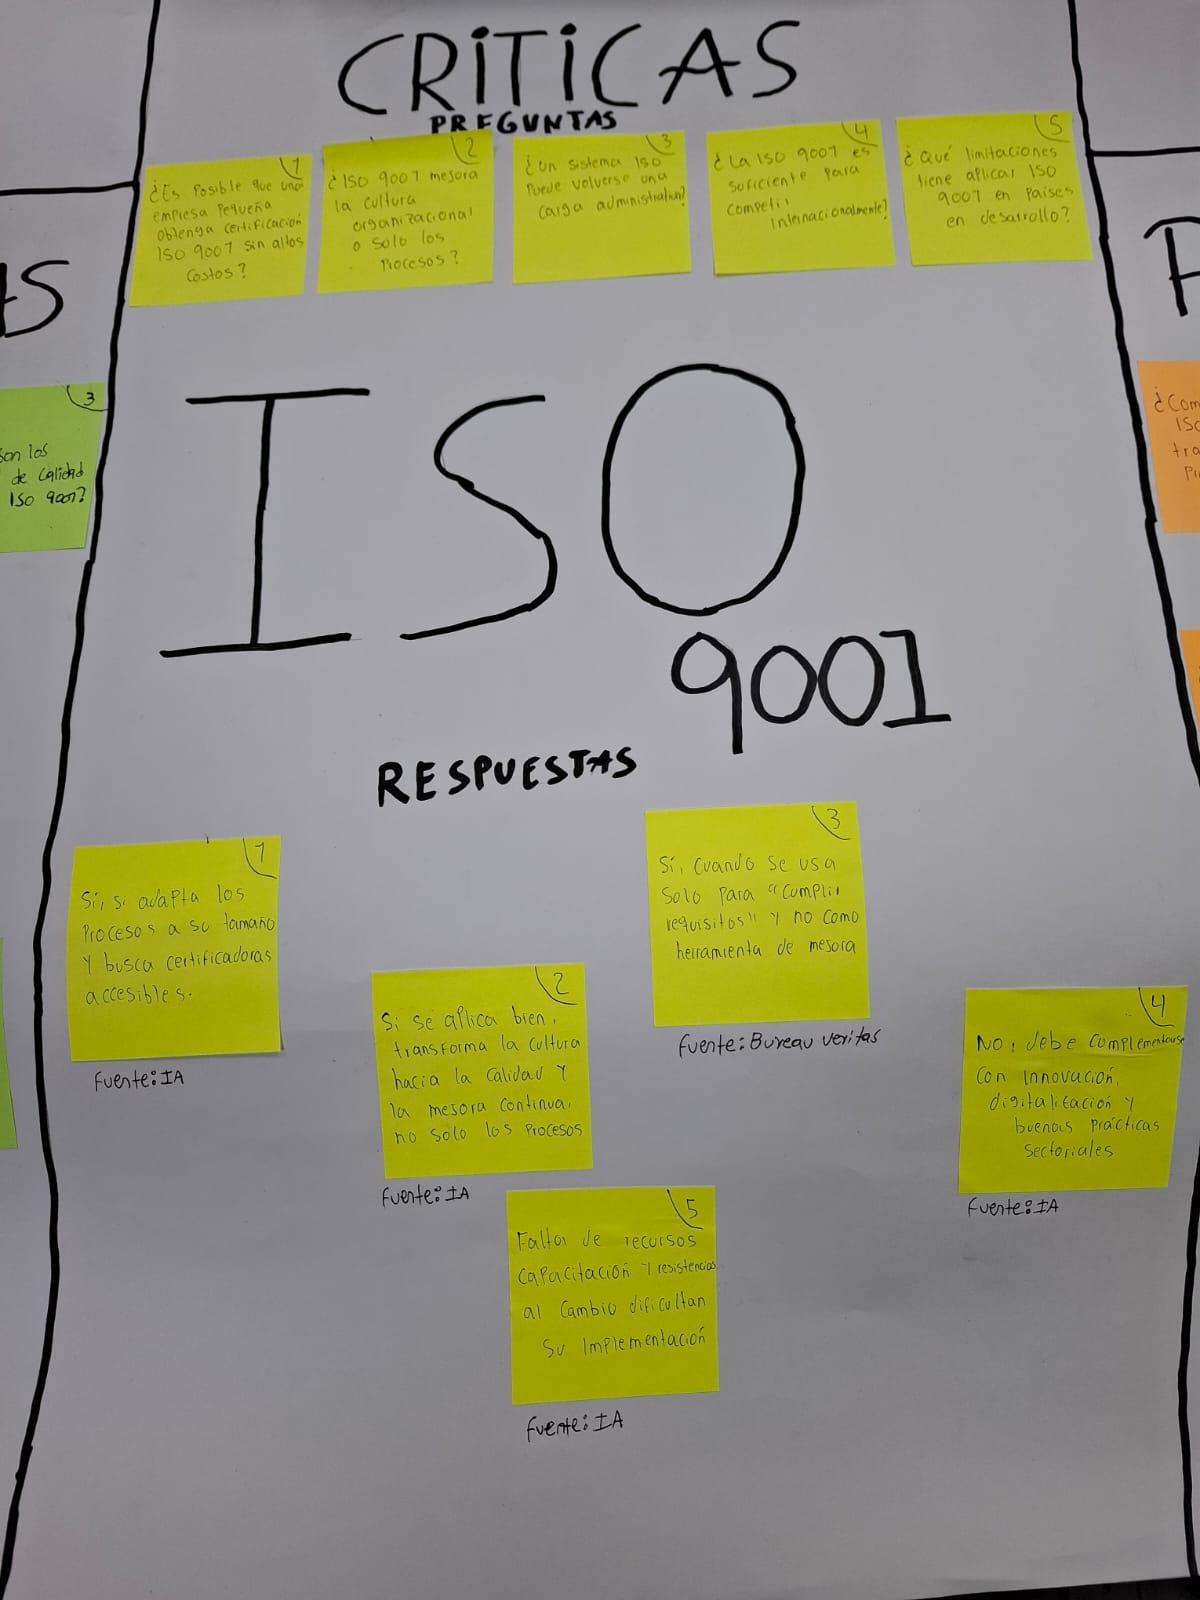 CRITICAS
PREGUNTAS
1
¿Es Posible que una
empresa Pequeña
obtenga certificación
ISO 9001 sin altos
Costos?
2
¿ISO 9001 mejora
la cultura
organizacional
o solo los
Procesos?
3
¿Un sistema ISO
Puede volverse una
carga administrativa?
4
¿La ISO 9001 es
suficiente para
competir
Internacionalmente?
5
¿Qué limitaciones
tiene aplicar ISO
9001 en Países
en desarrollo?
AS
3
son los
de calidad
ISO 9001?
ISO
9001
RESPUESTAS
1
Sí, si adapta los
Procesos a su tamaño
y busca certificadoras
accesibles.
Fuente: IA
2
Si se aplica bien,
transforma la cultura
hacia la calidad y
la mejora continua,
no solo los Procesos
Fuente: IA
3
Sí, cuando se usa
solo para "cumplir
requisitos" y no como
herramienta de mejora
Fuente: Bureau veritas
4
No, debe complementarse
con innovación,
digitalización y
buenas prácticas
sectoriales
Fuente: IA
5
Falta de recursos
capacitación y resistencias
al cambio dificultan
su implementación
Fuente: IA
¿Com